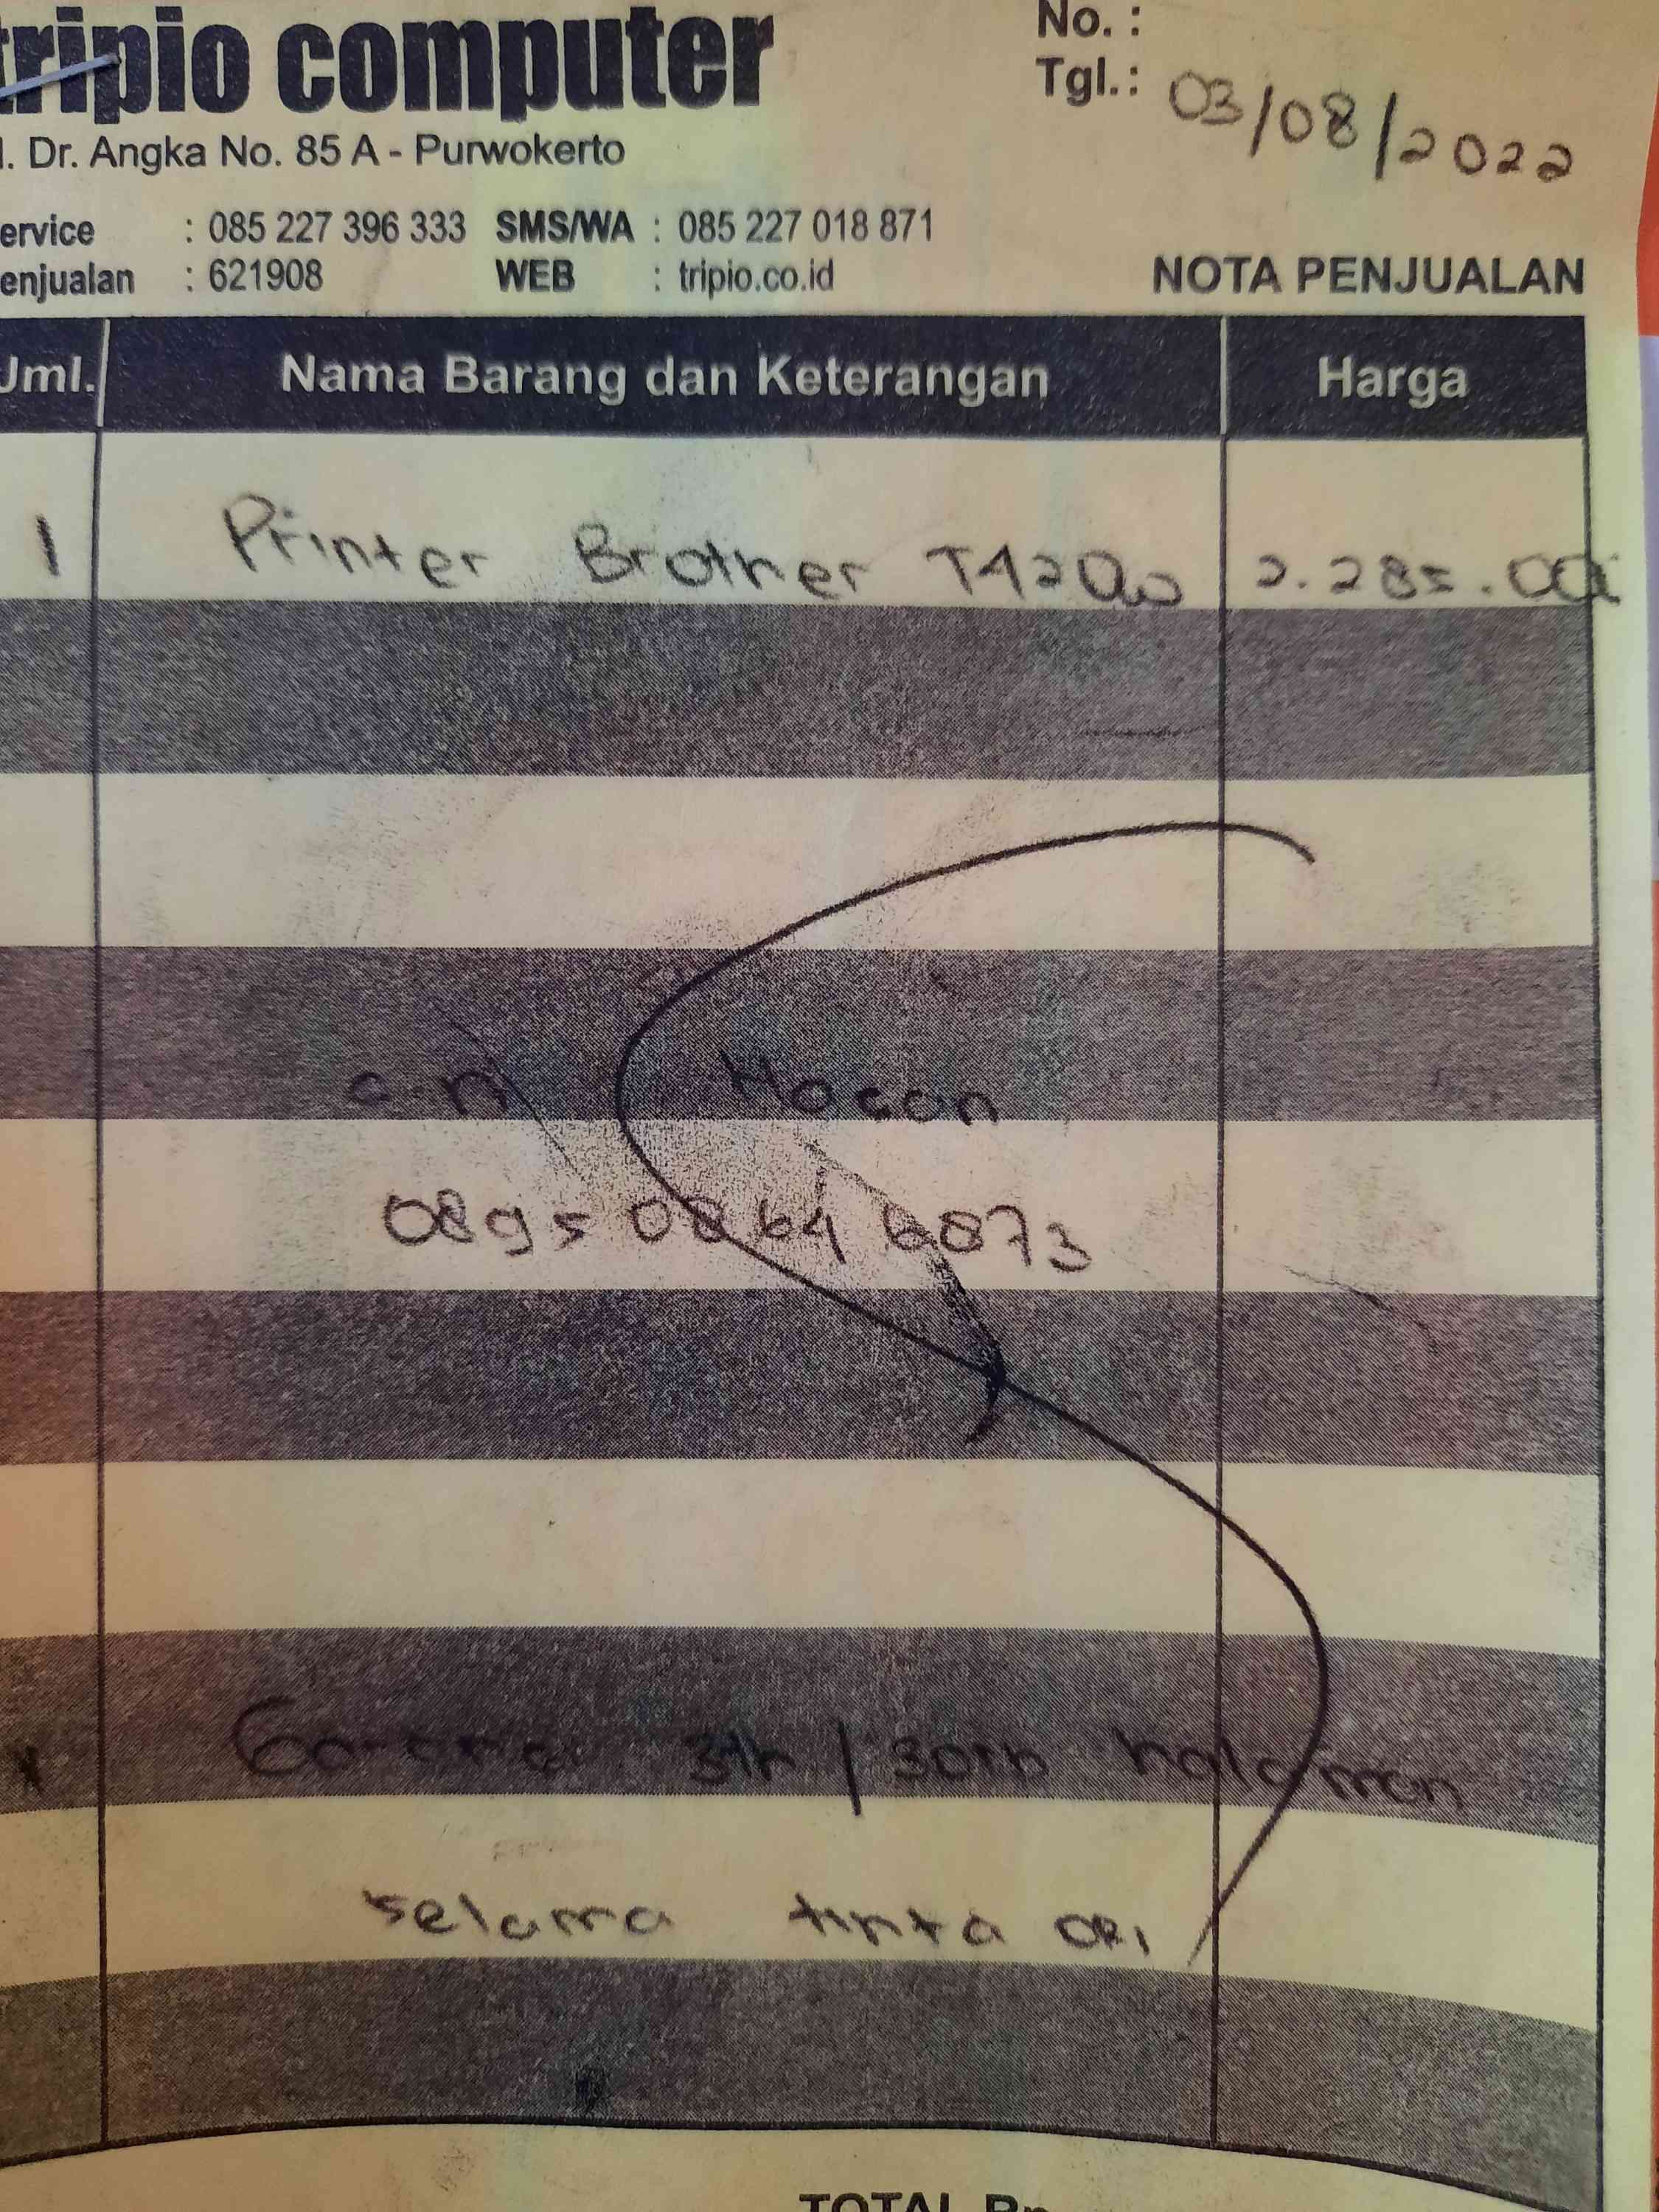 tripio computer
No. :
Tgl. : 03/08/2022
Dr. Angka No. 85 A - Purwokerto
ervice : 085 227 396 333 SMS/WA : 085 227 018 871
enjualan : 621908 WEB : tripio.co.id
NOTA PENJUALAN
Jml. Nama Barang dan Keterangan Harga
1 Printer Brother T420w 2.285.00
a.n
0895 0864 6873
3th / 30rb halaman
selama tinta ORI
TOTAL Rp